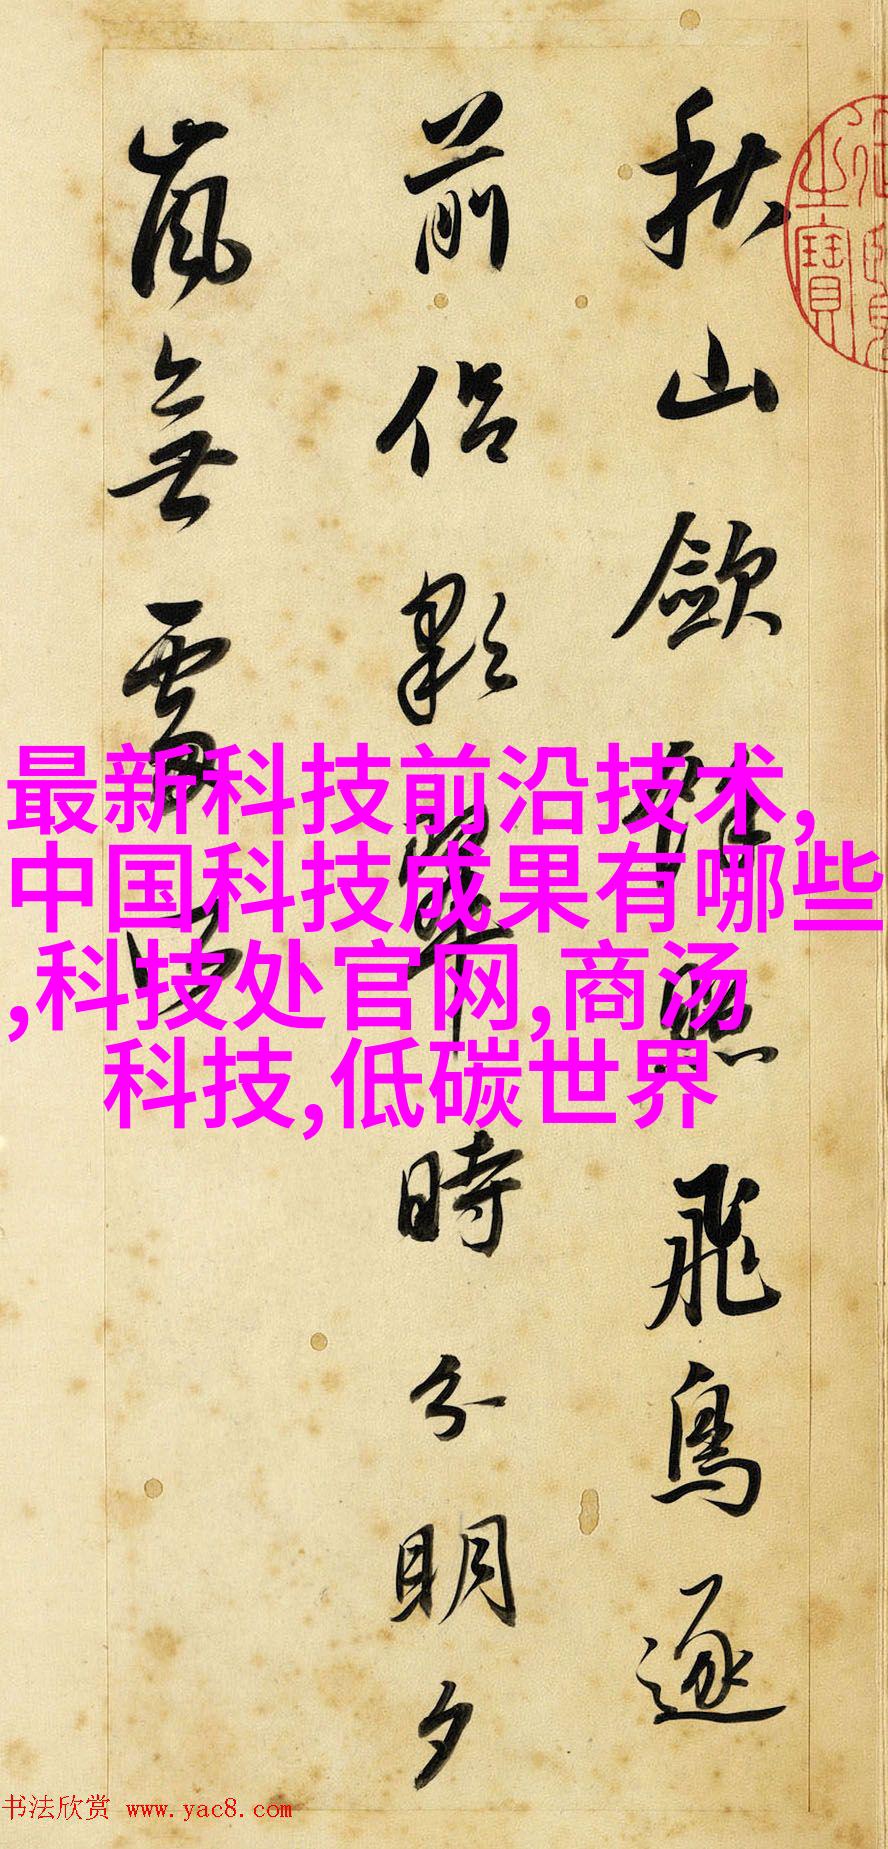 秋山歛餘照飛鳥逐
前侣彩翠時分明夕
嵐無處所
最新科技前沿技术,
中国科技成果有哪些
,科技处官网,商汤
科技,低碳世界
之寶
书法欣赏 www.yac8.com